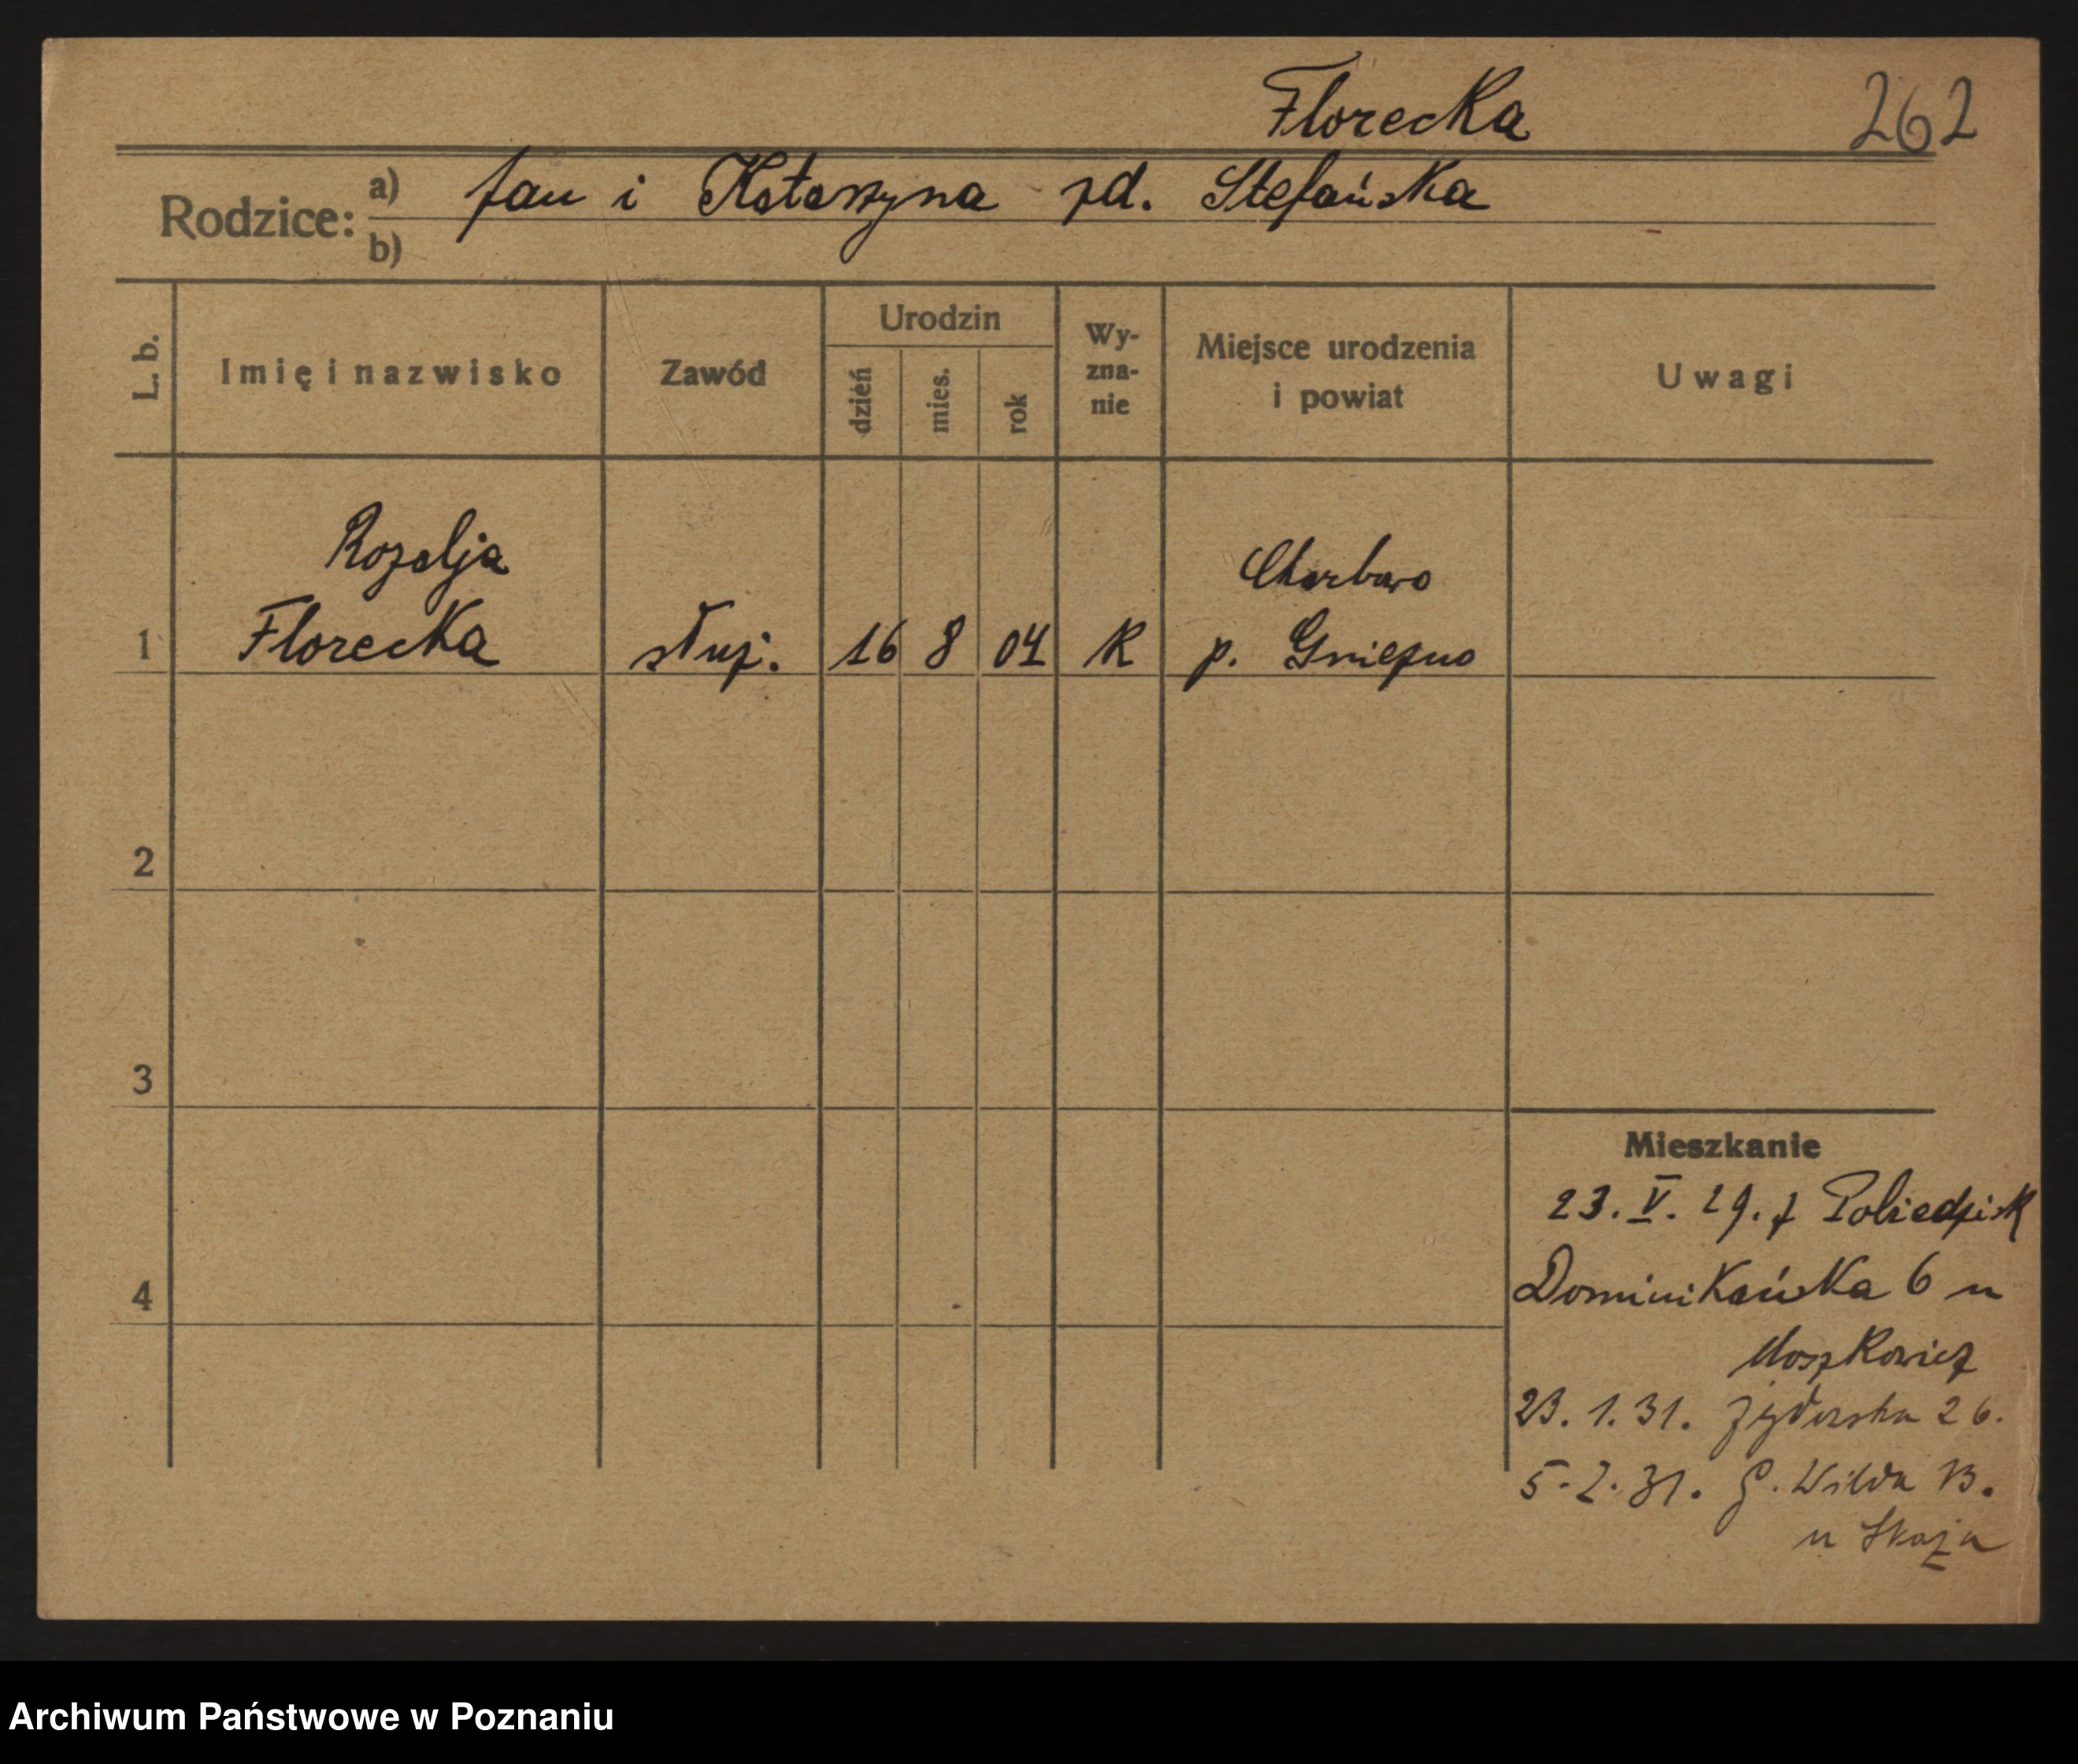 Florecka 262
Rodzice: a) Jan i Katarzyna zd. Stefańska
b)
L. b. Imię i nazwisko Zawód Urodzin dzień mies. rok Wy-zna-nie Miejsce urodzenia i powiat Uwagi
Rozalja Charbowo
1 Florecka służ. 16 8 04 K p. Gniezno
2
3
Mieszkanie
23. V. 29. z Pobiedzisk
4 Dominikańska 6 u
Moszkowicz
23. 1. 31. Żydowska 26.
5. 2. 31. G. Wilda 13.
u
Archiwum Państwowe w Poznaniu